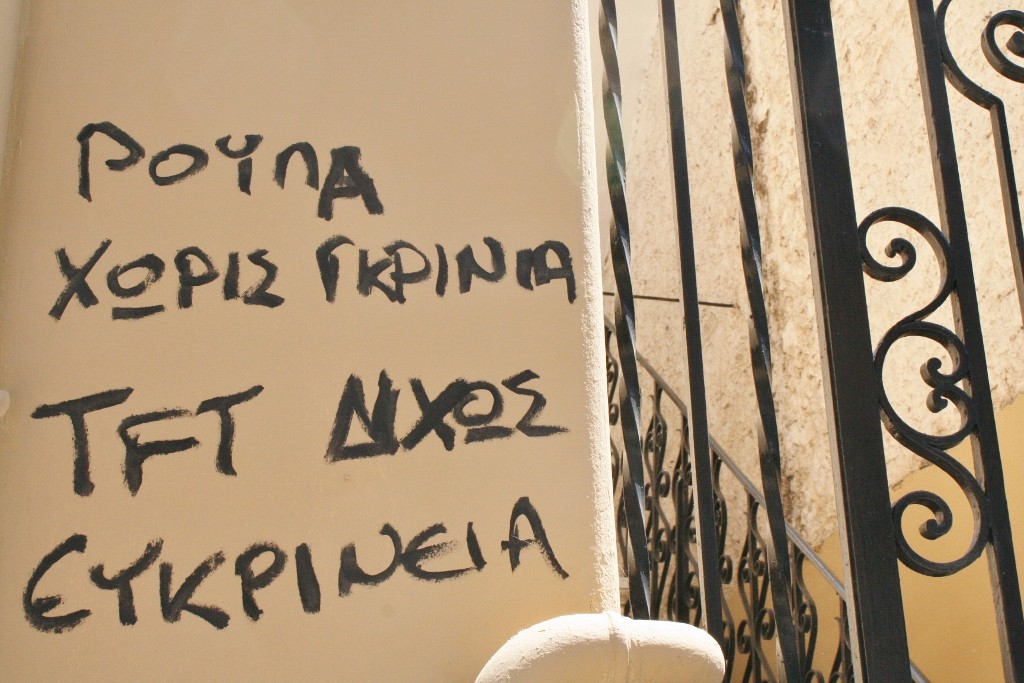 ΡΟΥΛΑ
ΧΩΡΙΣ ΓΚΡΙΝΙΑ
TFT ΔΙΧΩΣ
ΕΥΚΡΙΝΕΙΑ